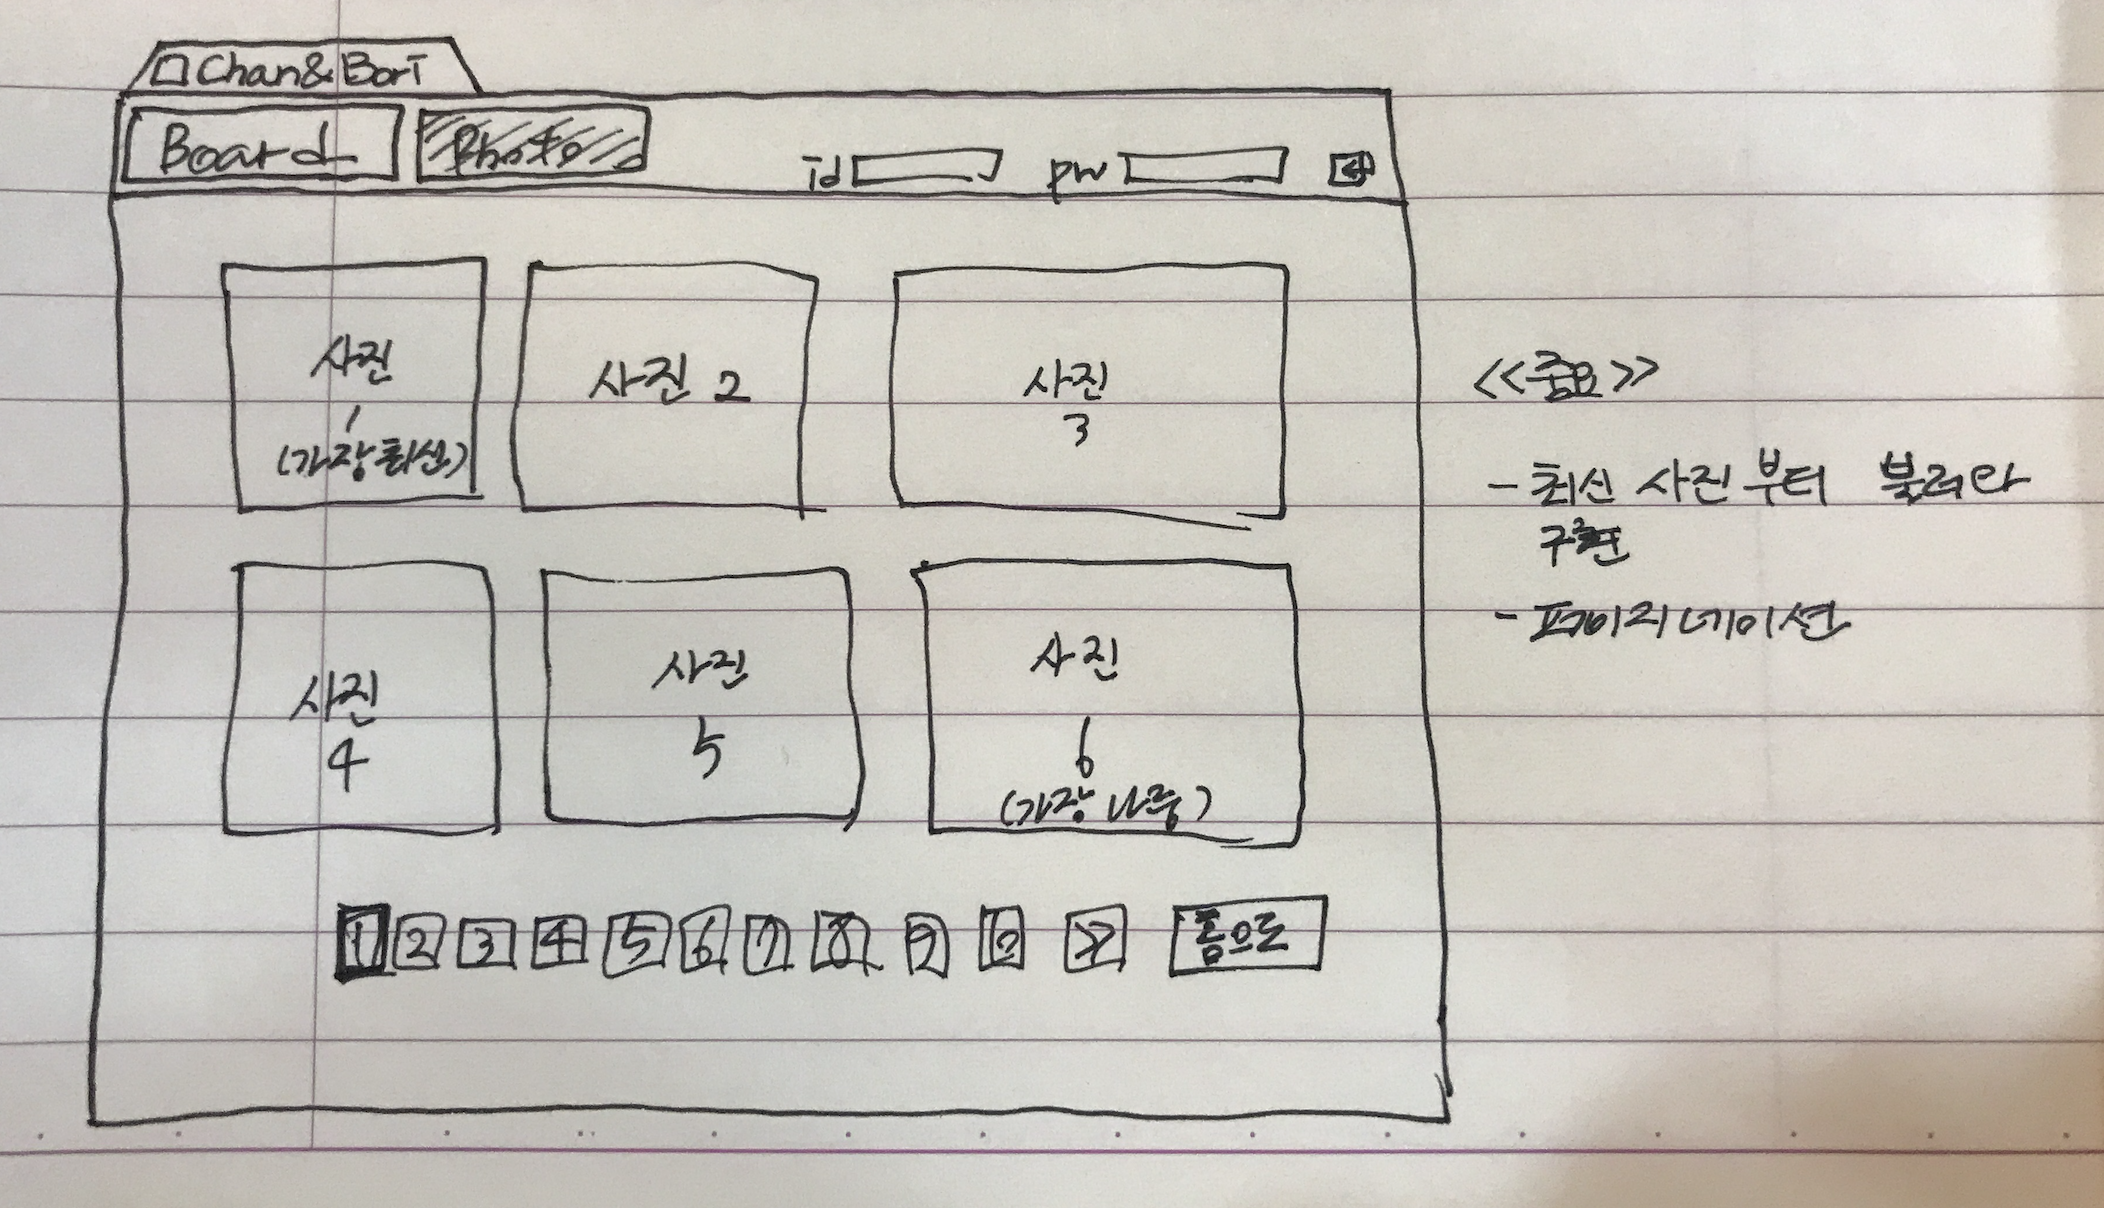 Chan&Bori
Board Photo id pw
사진
1
(가장 최신)
사진 2
사진
3
사진
4
사진
5
사진
6
(가장 나중)
1 2 3 4 5 6 7 8 9 10 >> 홈으로
<<중요>>
- 최신 사진부터 불러와
구현
- 페이지네이션